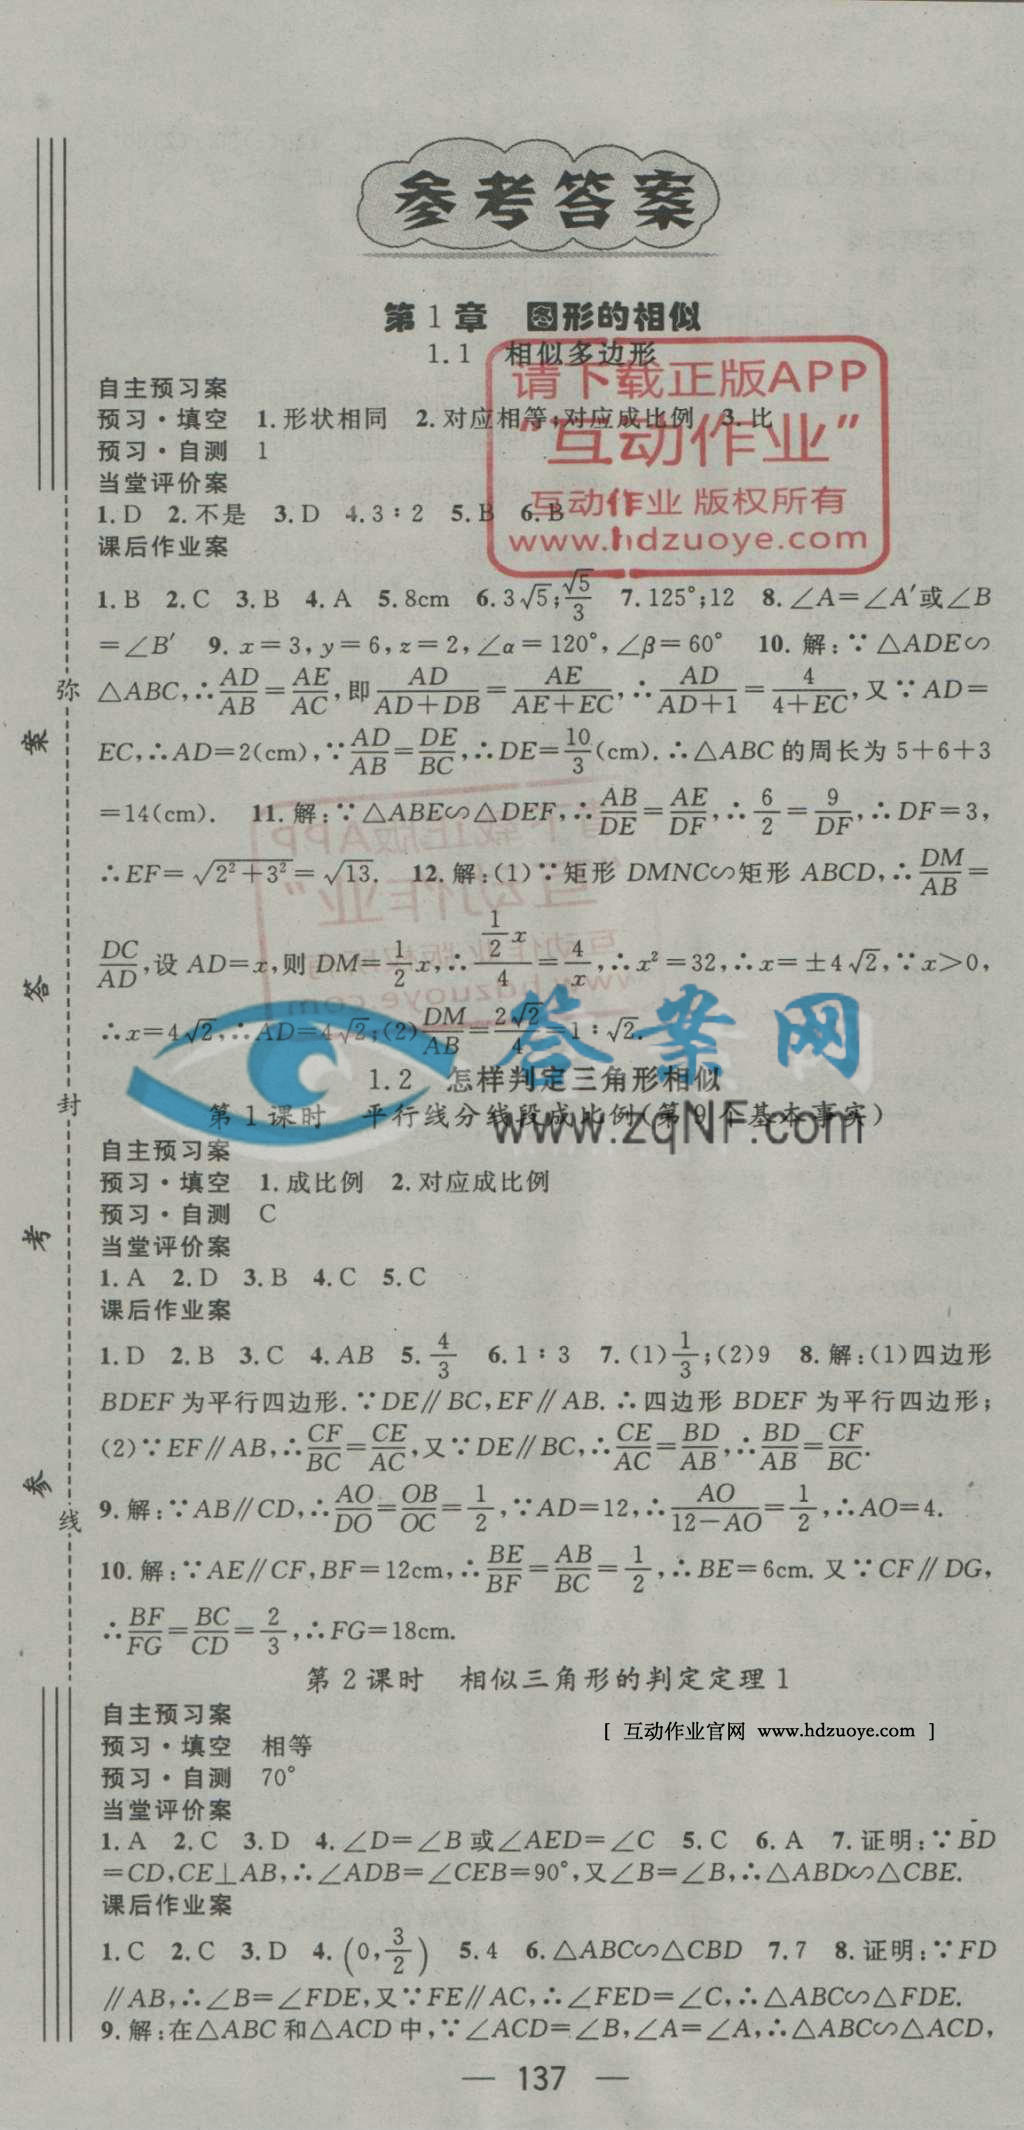 参考答案
第1章 图形的相似
1.1 相似多边形
自主预习案
预习·填空 1.形状相同 2.对应相等;对应成比例 3.比
预习·自测 1
当堂评价案
1.D 2.不是 3.D 4.3∶2 5.B 6.B
课后作业案
1.B 2.C 3.B 4.A 5.8cm 6.3√5;√5/3 7.125°;12 8.∠A=∠A′或∠B
=∠B′ 9.x=3,y=6,z=2,∠α=120°,∠β=60° 10.解:∵△ADE∽
△ABC,∴AD/AB=AE/AC,即AD/(AD+DB)=AE/(AE+EC),∴AD/(AD+1)=4/(4+EC),又∵AD=
EC,∴AD=2(cm),∵AD/AB=DE/BC,∴DE=10/3(cm).∴△ABC的周长为5+6+3
=14(cm). 11.解:∵△ABE∽△DEF,∴AB/DE=AE/DF,∴6/2=9/DF,∴DF=3,
∴EF=√(2²+3²)=√13. 12.解:(1)∵矩形DMNC∽矩形ABCD,∴DM/AB=
DC/AD,设AD=x,则DM=1/2x,∴(1/2x)/4=4/x,∴x²=32,∴x=±4√2,∵x>0,
∴x=4√2,∴AD=4√2;(2)DM/AB=2√2/4=1∶√2.
1.2 怎样判定三角形相似
第1课时 平行线分线段成比例(第9个基本事实)
自主预习案
预习·填空 1.成比例 2.对应成比例
预习·自测 C
当堂评价案
1.A 2.D 3.B 4.C 5.C
课后作业案
1.D 2.B 3.C 4.AB 5.4/3 6.1∶3 7.(1)1/3;(2)9 8.解:(1)四边形
BDEF为平行四边形.∵DE∥BC,EF∥AB.∴四边形BDEF为平行四边形;
(2)∵EF∥AB,∴CF/BC=CE/AC,又∵DE∥BC,∴CE/AC=BD/AB,∴BD/AB=CF/BC.
9.解:∵AB∥CD,∴AO/DO=OB/OC=1/2,∵AD=12,∴AO/(12-AO)=1/2,∴AO=4.
10.解:∵AE∥CF,BF=12cm,∴BE/BF=AB/BC=1/2,∴BE=6cm.又∵CF∥DG,
∴BF/FG=BC/CD=2/3,∴FG=18cm.
第2课时 相似三角形的判定定理1
自主预习案
预习·填空 相等
预习·自测 70°
当堂评价案
1.A 2.C 3.D 4.∠D=∠B或∠AED=∠C 5.C 6.A 7.证明:∵BD
=CD,CE⊥AB,∴∠ADB=∠CEB=90°,又∠B=∠B,∴△ABD∽△CBE.
课后作业案
1.C 2.C 3.D 4.(0,3/2) 5.4 6.△ABC∽△CBD 7.7 8.证明:∵FD
∥AB,∴∠B=∠FDE,又∵FE∥AC,∴∠FED=∠C,∴△ABC∽△FDE.
9.解:在△ABC和△ACD中,∵∠ACD=∠B,∠A=∠A,∴△ABC∽△ACD,
— 137 —
弥
封
线
案
答
考
参
请下载正版APP
“互动作业”
互动作业 版权所有
www.hdzuoye.com
答案网
www.zqNF.com
[ 互动作业官网 www.hdzuoye.com ]